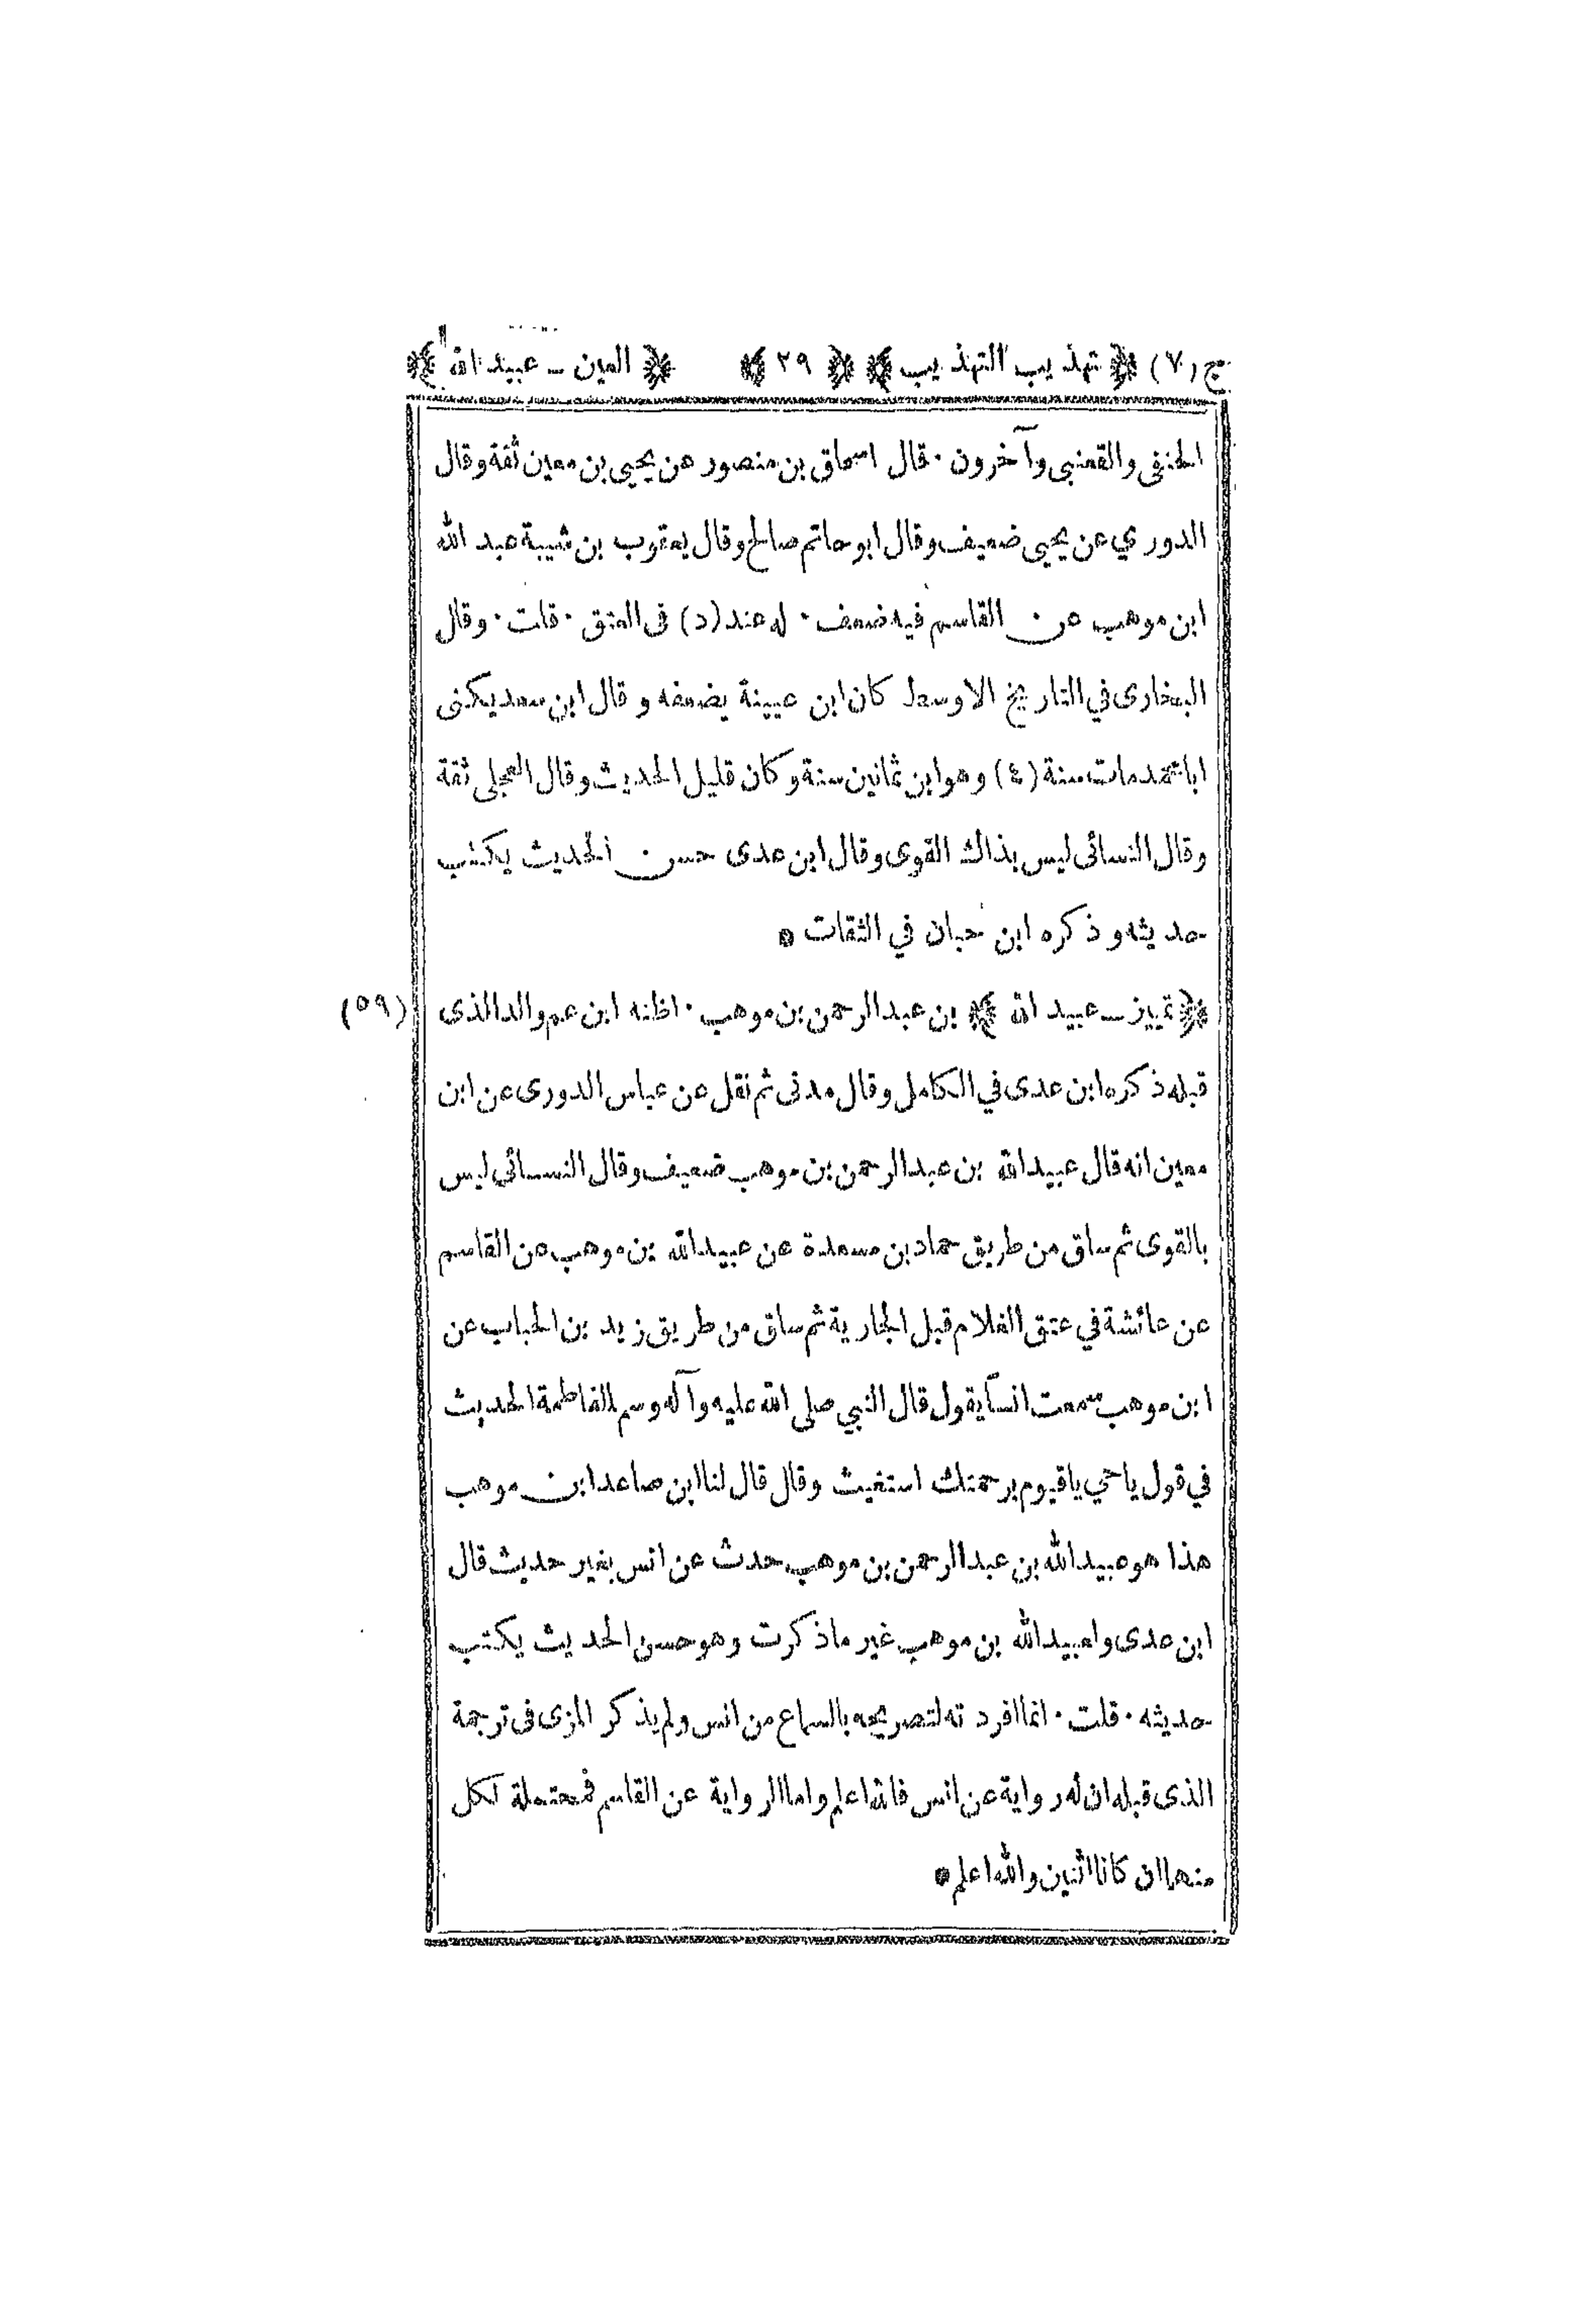 ج (٧) ﴿ تهذيب التهذيب ﴾ ﴿ ٢٩ ﴾ ﴿ العين ــ عبيد الله ﴾
الحنفى والقعنبى وآخرون ٠ قال اسحاق بن منصور عن يحيى بن معين ثقة وقال
الدوري عن يحيى ضعيف وقال ابو حاتم صالح وقال يعقوب بن شيبة عبد الله
ابن موهب عن القاسم فيه ضعف ٠ له عند (د) فى العتق ٠ قلت ٠ وقال
البخارى في التاريخ الاوسط كان ابن عيينة يضعفه وقال ابن سعد يكنى
ابا محمد مات سنة (٤) وهو ابن ثمانين سنة وكان قليل الحديث وقال العجلى ثقة
وقال النسائى ليس بذاك القوى وقال ابن عدى حسن الحديث يكتب
حديثه وذكره ابن حبان في الثقات *
﴿ تمييز ــ عبيد الله ﴾ بن عبد الرحمن بن موهب ٠ اظنه ابن عم والد الذى (٥٩)
قبله ذكره ابن عدى في الكامل وقال مدنى ثم نقل عن عباس الدورى عن ابن
معين انه قال عبيد الله بن عبد الرحمن بن موهب ضعيف وقال النسائي ليس
بالقوى ثم ساق من طريق حماد بن مسعدة عن عبيد الله بن موهب عن القاسم
عن عائشة في عتق الغلام قبل الجارية ثم ساق من طريق زيد بن الحباب عن
ابن موهب سمعت انسا يقول قال النبي صلى الله عليه وآله وسلم لفاطمة الحديث
في قول ياحي ياقيوم برحمتك استغيث وقال قال لنا ابن صاعد ابن موهب
هذا هو عبيد الله بن عبد الرحمن بن موهب حدث عن انس بغير حديث قال
ابن عدى ولعبيد الله بن موهب غير ماذكرت وهو حسن الحديث يكتب
حديثه ٠ قلت ٠ انما افردته لتصريحه بالسماع من انس ولم يذكر المزى فى ترجمة
الذى قبله ان له رواية عن انس فالله اعلم واما الرواية عن القاسم فمحتملة لكل
منهما ان كانا اثنين والله اعلم *